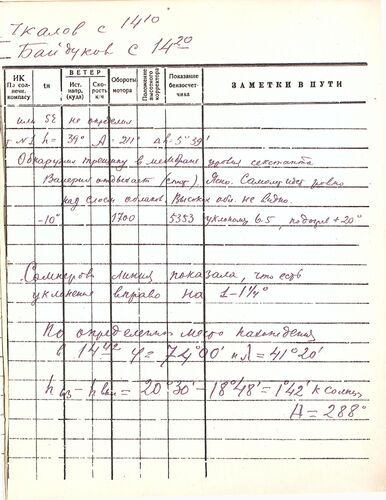 Чкалов с 14¹⁰
Байдуков с 14²⁰
ИК По солнечн. компасу
tн
ВЕТЕР
Ист. напр. (куда)
Скорость к/ч
Обороты мотора
Положение высотного корректора
Показание бензосчетчика
ЗАМЕТКИ В ПУТИ
или SE не определил
№1 h = 39° A = 211° 5°39'
Обнаружил трещину в мембране уровня секстанта
Валерий отдыхает (спит). Ясно. Самолет идет ровно
над слоем облаков. Высоких обл. не видно.
-10° 1700 5353 уклономер 6.5, подогрев +20°
Сомнерова линия показала, что есть
уклонение вправо на 1-1½°
По определению место нахождения
в 14⁴² φ = 74°00' и λ = 41°20'
h из - h выч = 20°30' - 18°48' = 1°42' к солнцу
A = 288°